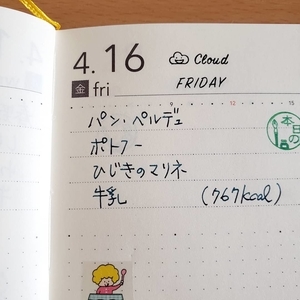 4.16 Cloud
金 fri FRIDAY
9 12 15
パン・ペルデュ
ポトフー
ひじきのマリネ
牛乳 (767kcal)
本日の